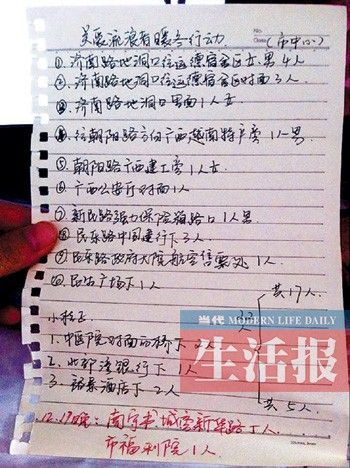 关爱流浪者暖冬行动
No.
Date
(市中心)
①济南路地洞口往运德宾馆区女男4人
②济南路地洞口往运德宾馆区对面3人
③济南路地洞口里面1人女
④往朝阳路方向广西越南特产旁1人男
⑤朝阳路广西建工旁1人女
⑥广西公安厅对面1人
⑦新民路强力保险箱路口1人男
⑧民乐路中国建行下3人
⑨民乐路政府大院航空售票处1人
⑩民生广场下1人
共17人
1.中医院对面动桥下2人
2.北部湾银行下1人
3.银泰酒店下2人
共5人
当代
MODERN LIFE DAILY
生活报
12.17晚：南宁书城空新华路下1人
市福利院1人